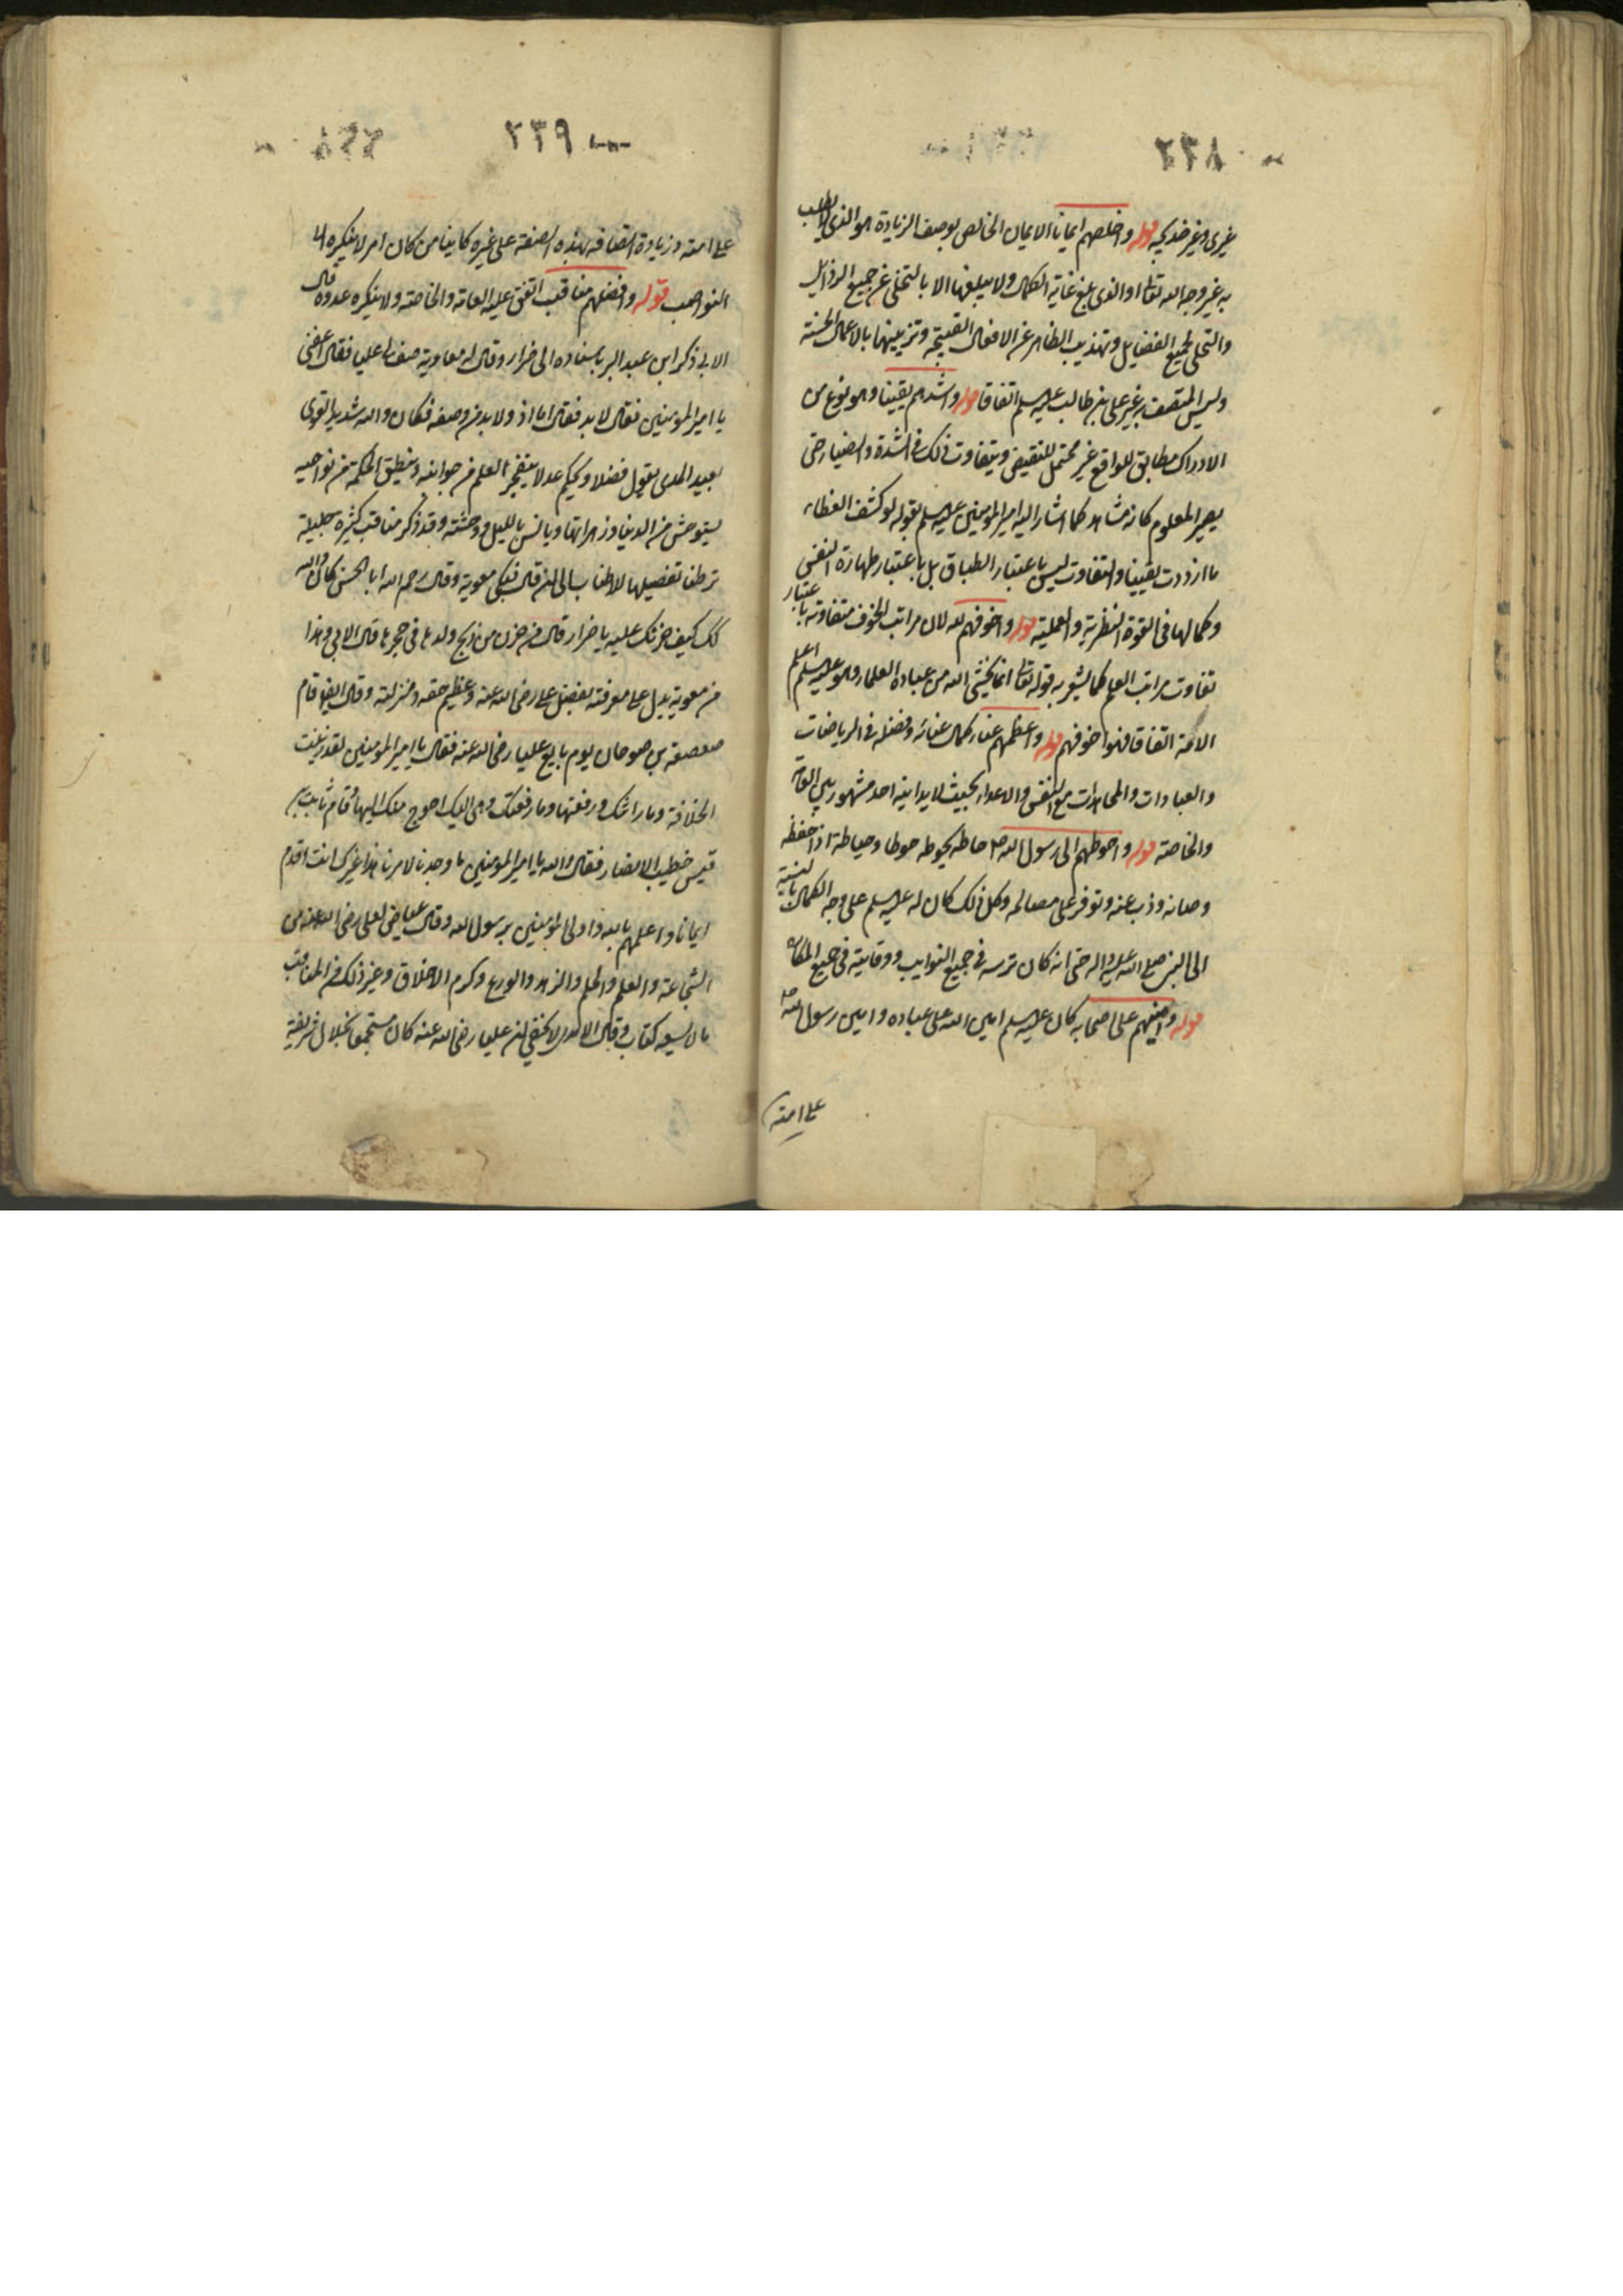 ٢٣٨
غيري وغير خديجة قوله واخلصهم ايمانا الايمان الخالص بوصف الزيادة هو الذي لا يطلب
به غير وجه الله تعالى او الذي بلغ غاية الكمال ولا يبلغها الا بالتخلي عن جميع الرذايل
والتحلي لجميع الفضايل وتهذيب الظاهر عن الافعال القبيحة وتزيينها بالاعمال الحسنة
وليس المتصف به غير علي بن ابي طالب عليه السلم اتفاقا قوله واشدهم يقينا وهو نوع من
الادراك مطابق للواقع غير محتمل للنقيض ويتفاوت ذلك في الشدة والضياء حتى
يصير المعلوم كانه مشاهد كما اشار اليه امير المؤمنين عليه السلم بقوله لو كشف الغطاء
ما ازددت يقينا والتفاوت ليس باعتبار الطباق بل باعتبار طهارة النفس
وكمالها في القوة النظرية والعملية قوله واخوفهم لله لان مراتب الخوف متفاوته باعتبار
تفاوت مراتب العلم كما يشعر به قوله تعالى انما يخشى الله من عباده العلماء وهو عليه السلم اعلم
الامة اتفاقا فهو اخوفهم قوله واعظمهم عناء كمال عنائه وفضله في الرياضات
والعبادات والمجاهدات مع النفس والاعداء بحيث لا يدانيه احد مشهور بين العامة
والخاصة قوله واحوطهم الى رسول الله ص حاطه يحوطه حوطا وحياطة اذا حفظه
وصانه وذب عنه وتوفر على مصالحه وكل ذلك كان له عليه السلم على وجه الكمال بالنسبة
الى النبي صلى الله عليه واله حتى انه كان ترسه في جميع النوايب ووقايته في جميع المكاره
قوله وآمنهم على اصحابه كان عليه السلم امين الله على عباده وامين رسول الله ص
على امته
٢٣٩
على امته وزيادة اتصافه بهذه الصفة على غيره كاينا من كان امر لا ينكره الا
النواصب قوله وافضلهم مناقب اتفق عليه العامة والخاصة ولا ينكره عدوه قال
الابي ذكر ابن عبد البر باسناده الى ضرار وقال له معاوية صف لي عليا فقال اعفني
يا امير المؤمنين فقال لا بد فقال اما اذ ولا بد من وصفه فكان والله شديد القوى
بعيد المدى يقول فضلا ويحكم عدلا يتفجر العلم من جوانبه وينطق الحكمة من نواحيه
يستوحش من الدنيا وزهراتها ويانس بالليل ووحشته وقد ذكر مناقب كثيرة جليلة
تركنا تفصيلها للاطناب الى ان قال فبكى معوية وقال رحم الله ابا الحسن كان والله
كذلك كيف حزنك عليه يا ضرار قال من حزن من ذبح ولدها في حجرها قال الابي وهذا
من معوية يدل على معرفته بفضل علي رضى الله عنه وعظيم حقه ومنزلته وقال ايضا قام
صعصعة بن صوحان يوم بايع عليا رضى الله عنه فقال يا امير المؤمنين لقد زينت
الخلافة وما زانتك ورفعتها وما رفعتك وهي اليك احوج منك اليها وقام ثابت بن
قيس خطيب الانصار فقال والله يا امير المؤمنين ما وجدنا لامرنا هذا غيرك انت اقدم
ايمانا واعلمهم بالله واولى المؤمنين برسول الله وقال عياض لعلي رضى الله عنه من
الشجاعة والعلم والحلم والزهد والورع وكرم الاخلاق وغير ذلك من المناقب
ما لا يسعه كتاب وقال الآمدي لا يخفى ان عليا رضى الله عنه كان مستجمعا لخلال شريفة